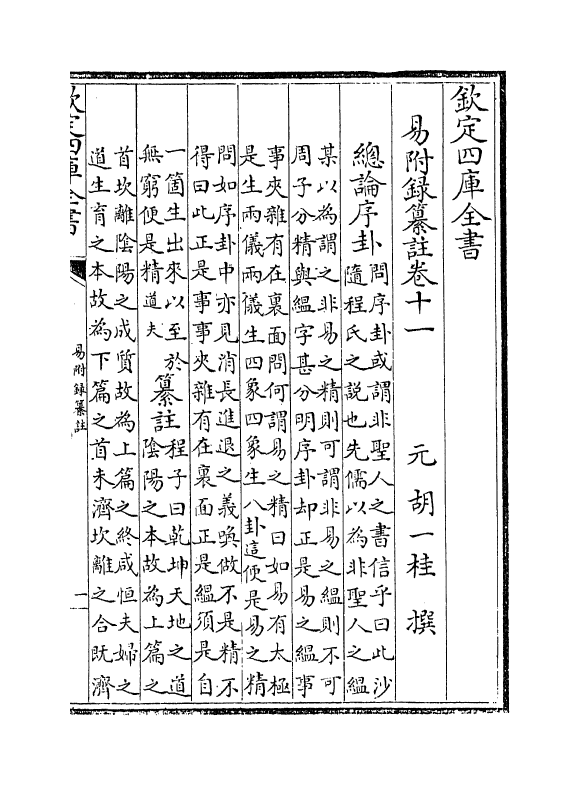 欽定四庫全書
易附錄纂註卷十一　元　胡一桂　撰
總論序卦
問序卦或謂非聖人之書信乎曰此沙
隨程氏之說也先儒以為非聖人之緼
某以為謂之非易之精則可謂非易之緼則不可
周子分精與緼字甚分明序卦却正是易之緼事
事夾雜有在裏面問何謂易之精曰如易有太極
是生兩儀兩儀生四象四象生八卦這便是易之精
問如序卦中亦見消長進退之義喚做不是精不
得曰此正是事事夾雜有在裏面正是緼須是自
一箇生出來以至於
無窮便是精道夫
纂註
程子曰乾坤天地之道
陰陽之本故為上篇之
首坎離陰陽之成質故為上篇之終咸恒夫婦之
道生育之本故為下篇之首未濟坎離之合既濟
欽定四庫全書
易附錄纂註
一